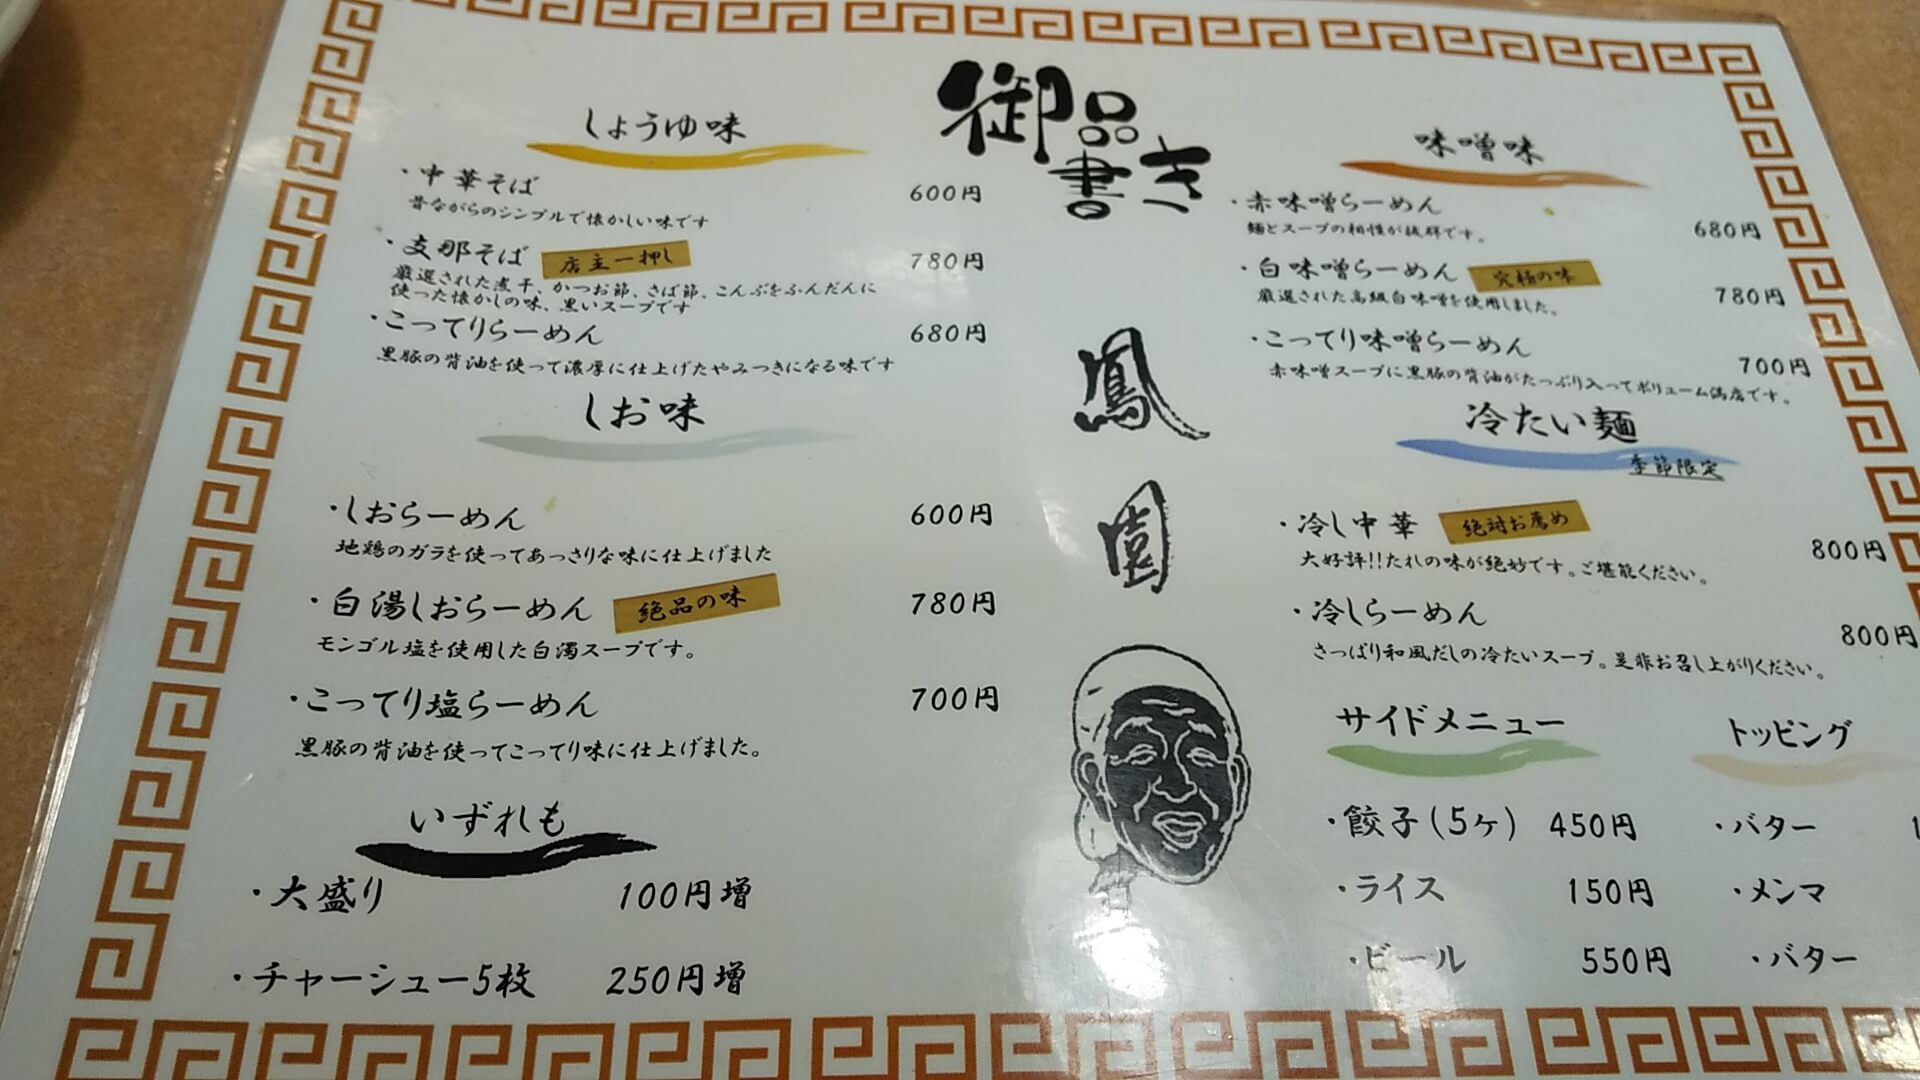 御品書き
しょうゆ味
・中華そば 600円
昔ながらのシンプルで懐かしい味です
・支那そば 店主一押し 780円
厳選された煮干、かつお節、さば節、こんぶをふんだんに
使った懐かしの味、黒いスープです
・こってりらーめん 680円
黒豚の背油を使って濃厚に仕上げたやみつきになる味です
しお味
・しおらーめん 600円
地鶏のガラを使ってあっさりな味に仕上げました
・白湯しおらーめん 絶品の味 780円
モンゴル塩を使用した白濁スープです。
・こってり塩らーめん 700円
黒豚の背油を使ってこってり味に仕上げました。
いずれも
・大盛り 100円増
・チャーシュー5枚 250円増
鳳園
味噌味
・赤味噌らーめん 680円
麺とスープの相性が抜群です。
・白味噌らーめん 究極の味 780円
厳選された高級白味噌を使用しました。
・こってり味噌らーめん 700円
赤味噌スープに黒豚の背油がたっぷり入ってボリューム満店です。
冷たい麺
季節限定
・冷し中華 絶対お薦め 800円
大好評!!たれの味が絶妙です。ご堪能ください。
・冷しらーめん 800円
さっぱり和風だしの冷たいスープ。是非お召し上がりください。
サイドメニュー
・餃子(5ケ) 450円
・ライス 150円
・ビール 550円
トッピング
・バター
・メンマ
・バター